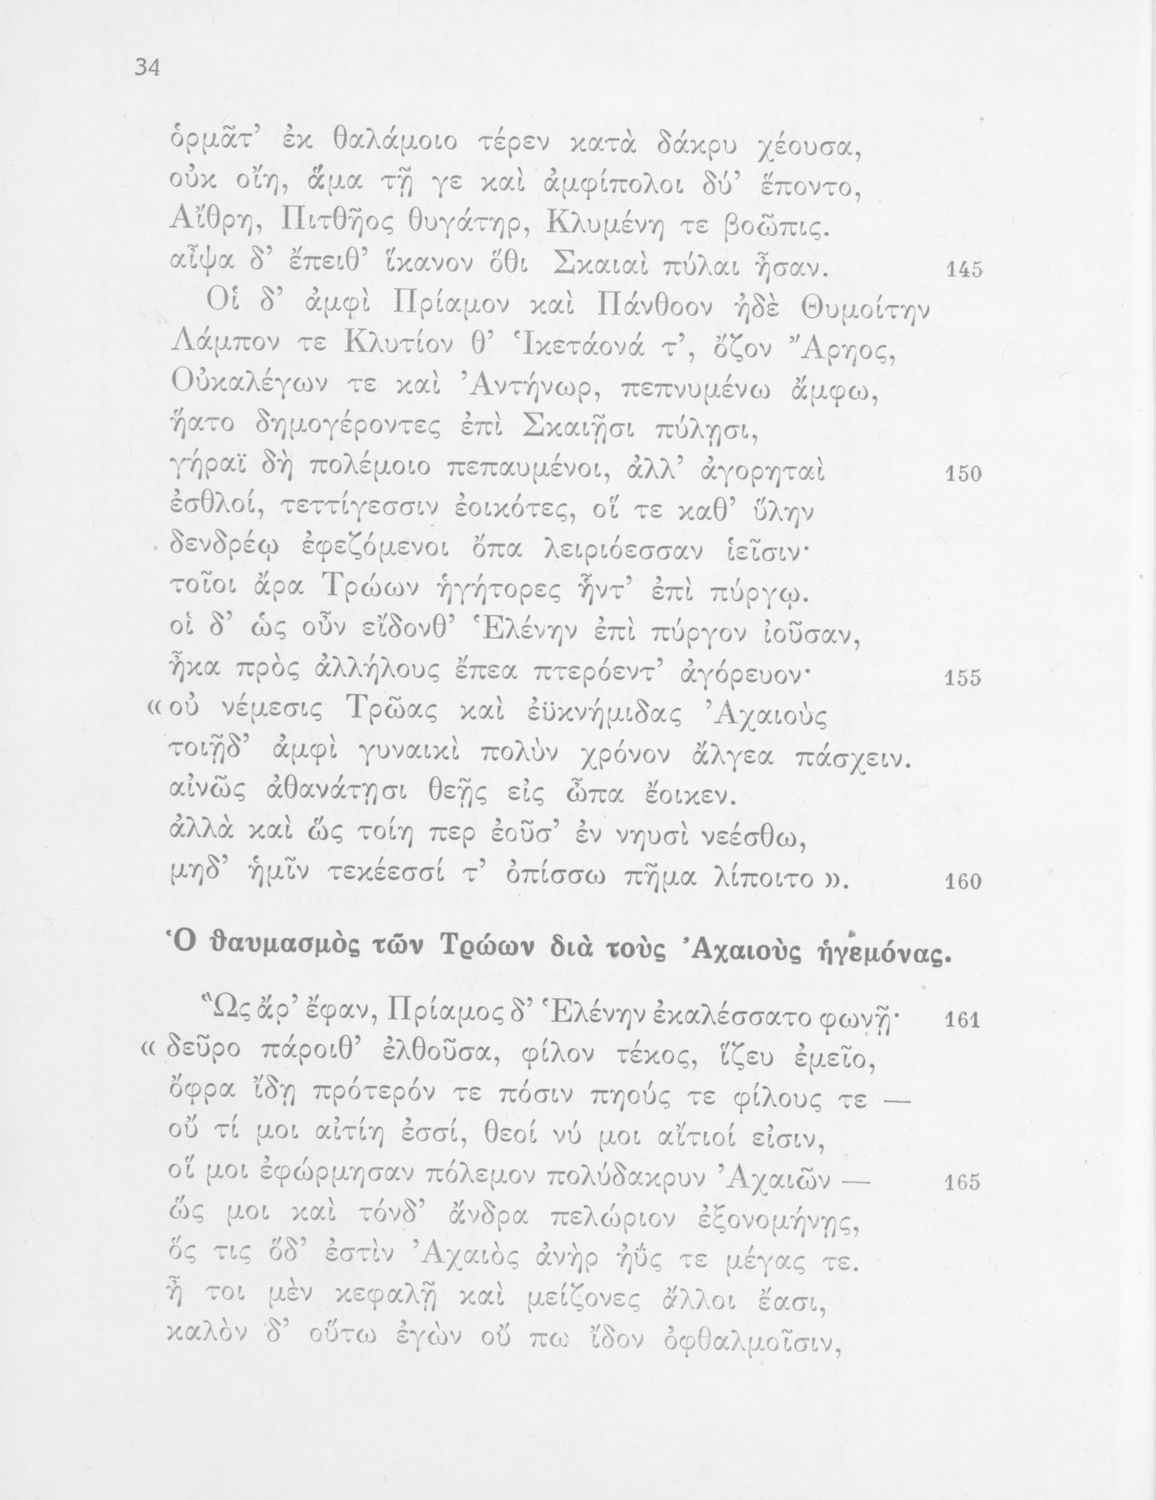 34
ὁρμᾶτ’ ἐκ θαλάμοιο τέρεν κατὰ δάκρυ χέουσα,
οὐκ οἴη, ἅμα τῇ γε καὶ ἀμφίπολοι δύ’ ἕποντο,
Αἴθρη, Πιτθῆος θυγάτηρ, Κλυμένη τε βοῶπις.
αἶψα δ’ ἔπειθ’ ἵκανον ὅθι Σκαιαὶ πύλαι ἦσαν. 145
Οἱ δ’ ἀμφὶ Πρίαμον καὶ Πάνθοον ἠδὲ Θυμοίτην
Λάμπον τε Κλυτίον θ’ Ἱκετάονά τ’, ὄζον Ἄρηος,
Οὐκαλέγων τε καὶ Ἀντήνωρ, πεπνυμένω ἄμφω,
ἥατο δημογέροντες ἐπὶ Σκαιῇσι πύλῃσι,
γήραϊ δὴ πολέμοιο πεπαυμένοι, ἀλλ’ ἀγορηταὶ 150
ἐσθλοί, τεττίγεσσιν ἐοικότες, οἵ τε καθ’ ὕλην
δενδρέῳ ἐφεζόμενοι ὄπα λειριόεσσαν ἱεῖσιν·
τοῖοι ἄρα Τρώων ἡγήτορες ἧντ’ ἐπὶ πύργῳ.
οἱ δ’ ὡς οὖν εἴδονθ’ Ἑλένην ἐπὶ πύργον ἰοῦσαν,
ἦκα πρὸς ἀλλήλους ἔπεα πτερόεντ’ ἀγόρευον· 155
«οὐ νέμεσις Τρῶας καὶ ἐϋκνήμιδας Ἀχαιοὺς
τοιῇδ’ ἀμφὶ γυναικὶ πολὺν χρόνον ἄλγεα πάσχειν.
αἰνῶς ἀθανάτῃσι θεῇς εἰς ὦπα ἔοικεν.
ἀλλὰ καὶ ὥς τοίη περ ἐοῦσ’ ἐν νηυσὶ νεέσθω,
μηδ’ ἡμῖν τεκέεσσί τ’ ὀπίσσω πῆμα λίποιτο». 160
Ὁ θαυμασμὸς τῶν Τρώων διὰ τοὺς Ἀχαιοὺς ἡγεμόνας.
Ὣς ἄρ’ ἔφαν, Πρίαμος δ’ Ἑλένην ἐκαλέσσατο φωνῇ· 161
«δεῦρο πάροιθ’ ἐλθοῦσα, φίλον τέκος, ἵζευ ἐμεῖο,
ὄφρα ἴδῃ πρότερόν τε πόσιν πηούς τε φίλους τε —
οὔ τί μοι αἰτίη ἐσσί, θεοί νύ μοι αἴτιοί εἰσιν,
οἵ μοι ἐφώρμησαν πόλεμον πολύδακρυν Ἀχαιῶν — 165
ὥς μοι καὶ τόνδ’ ἄνδρα πελώριον ἐξονομήνῃς,
ὅς τις ὅδ’ ἐστὶν Ἀχαιὸς ἀνὴρ ἠΰς τε μέγας τε.
ἦ τοι μὲν κεφαλῇ καὶ μείζονες ἄλλοι ἔασι,
καλὸν δ’ οὕτω ἐγὼν οὔ πω ἴδον ὀφθαλμοῖσιν,